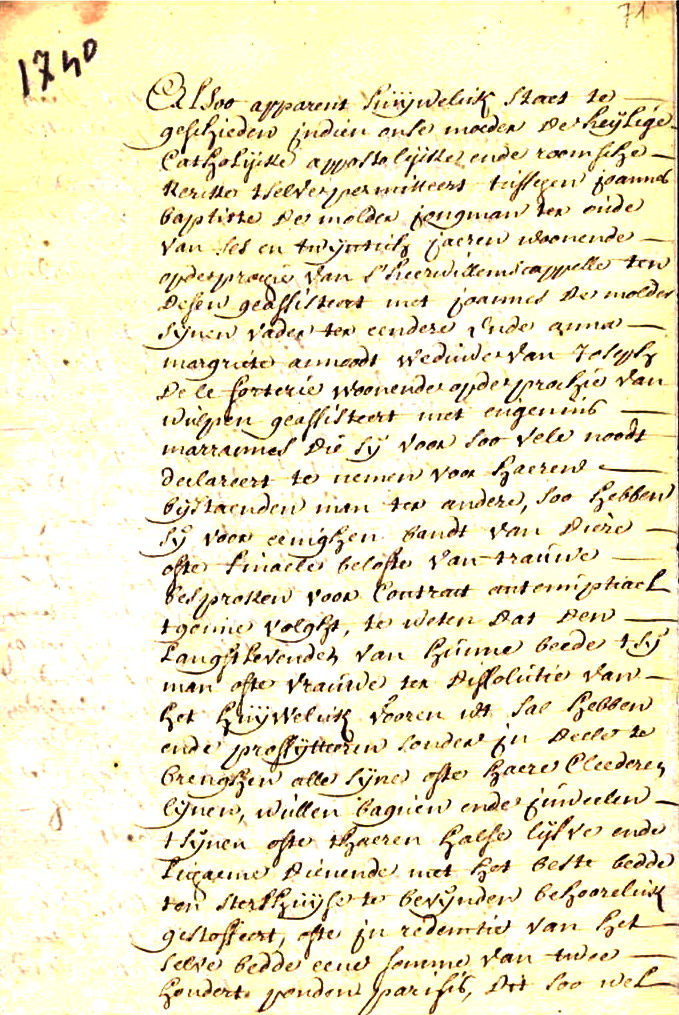 71
1740
Alsoo apparent huijweluk staet te
geschieden indien onse moeder de heijlige
Catholijcke appostolijcke ende roomsche
kercke tselve permitteert tusschen joannes
baptiste de molder jongman ter oude
van ses en twijntich jaeren woonende
opde prochie van S'heerwillemscappelle ten
desen geassisteert met joannes de molder
sijnen vader ter eendere Ende anna
margriete annoodt weduwe van Joseph
de le forterie woonende opde prochie van
wulpen geassisteert met eugenius
marrannes die sij voor soo vele noodt
declareert te nemen voor haeren
bijstaenden man ter andere, soo hebben
sij voor eenighen bandt van
ofte belofte van trauwe
besproken voor Contract antenuptiael
tgonne volght, te weten dat den
Langhstlevenden van hunne beede tsij
man ofte vrauwe ter dissolutie van
het huijweluk vooren uut sal hebben
ende proffijtteren sonder in deele te
brenghen alle sijne ofte haere Cleederen
lijnen, wullen baguen ende juweelen
tsijnen ofte thaeren halse lijfve ende
Lichaeme dienende met het beste bedde
ten sterfhuijse te bevijnden behooreluk
gestoffeert, ofte in redemtie van het
selve bedde eene somme van twee
hondert ponden parisis, dit soo wel